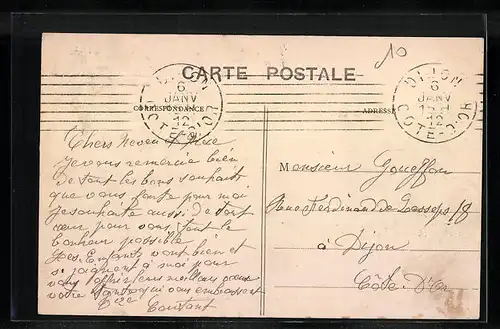 10
CARTE POSTALE
CORRESPONDANCE
ADRESSE
DIJON
6
JANV
12
COTE-D'OR
DIJON
6
JANV
12
COTE-D'OR
Chers Neveu et Nièce
je vous remercie bien
de tout les bons souhaits
que vous faite pour moi
je souhaite aussi de tout
cœur pour vous tout le
bonheur possible
Les Enfants vont bien et
se joignent à moi pour
vous offrir leurs meilleurs vœux
votre Tante qui vous embrassent
Vve Coutant
Monsieur Gouffon
Rue Ferdinand de Lesseps 18
à Dijon
Côte-D'Or